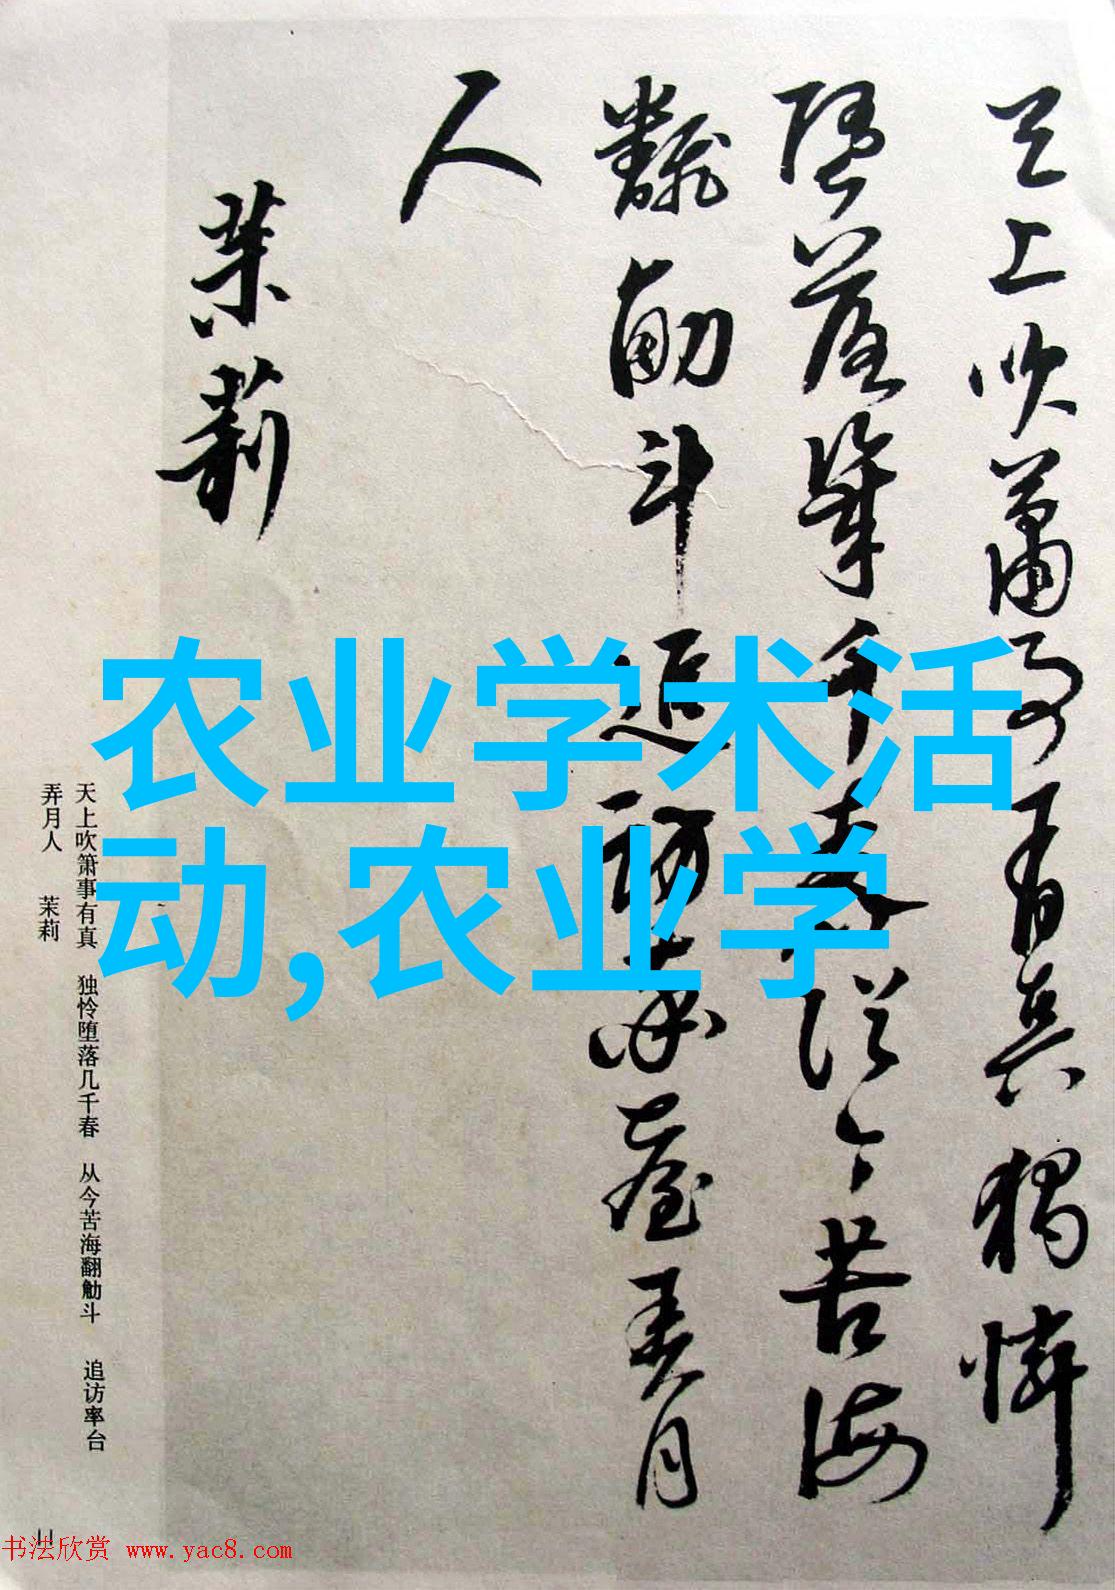 天上吹簫事有真獨憐
墮落幾千春從今苦海
飜觔斗追訪率臺弄月
人
茉莉
农业学术活
动,农业学
天上吹箫事有真 独怜堕落几千春 从今苦海翻觔斗 追访率台
弄月人 茉莉
11
书法欣赏 www.yac8.com